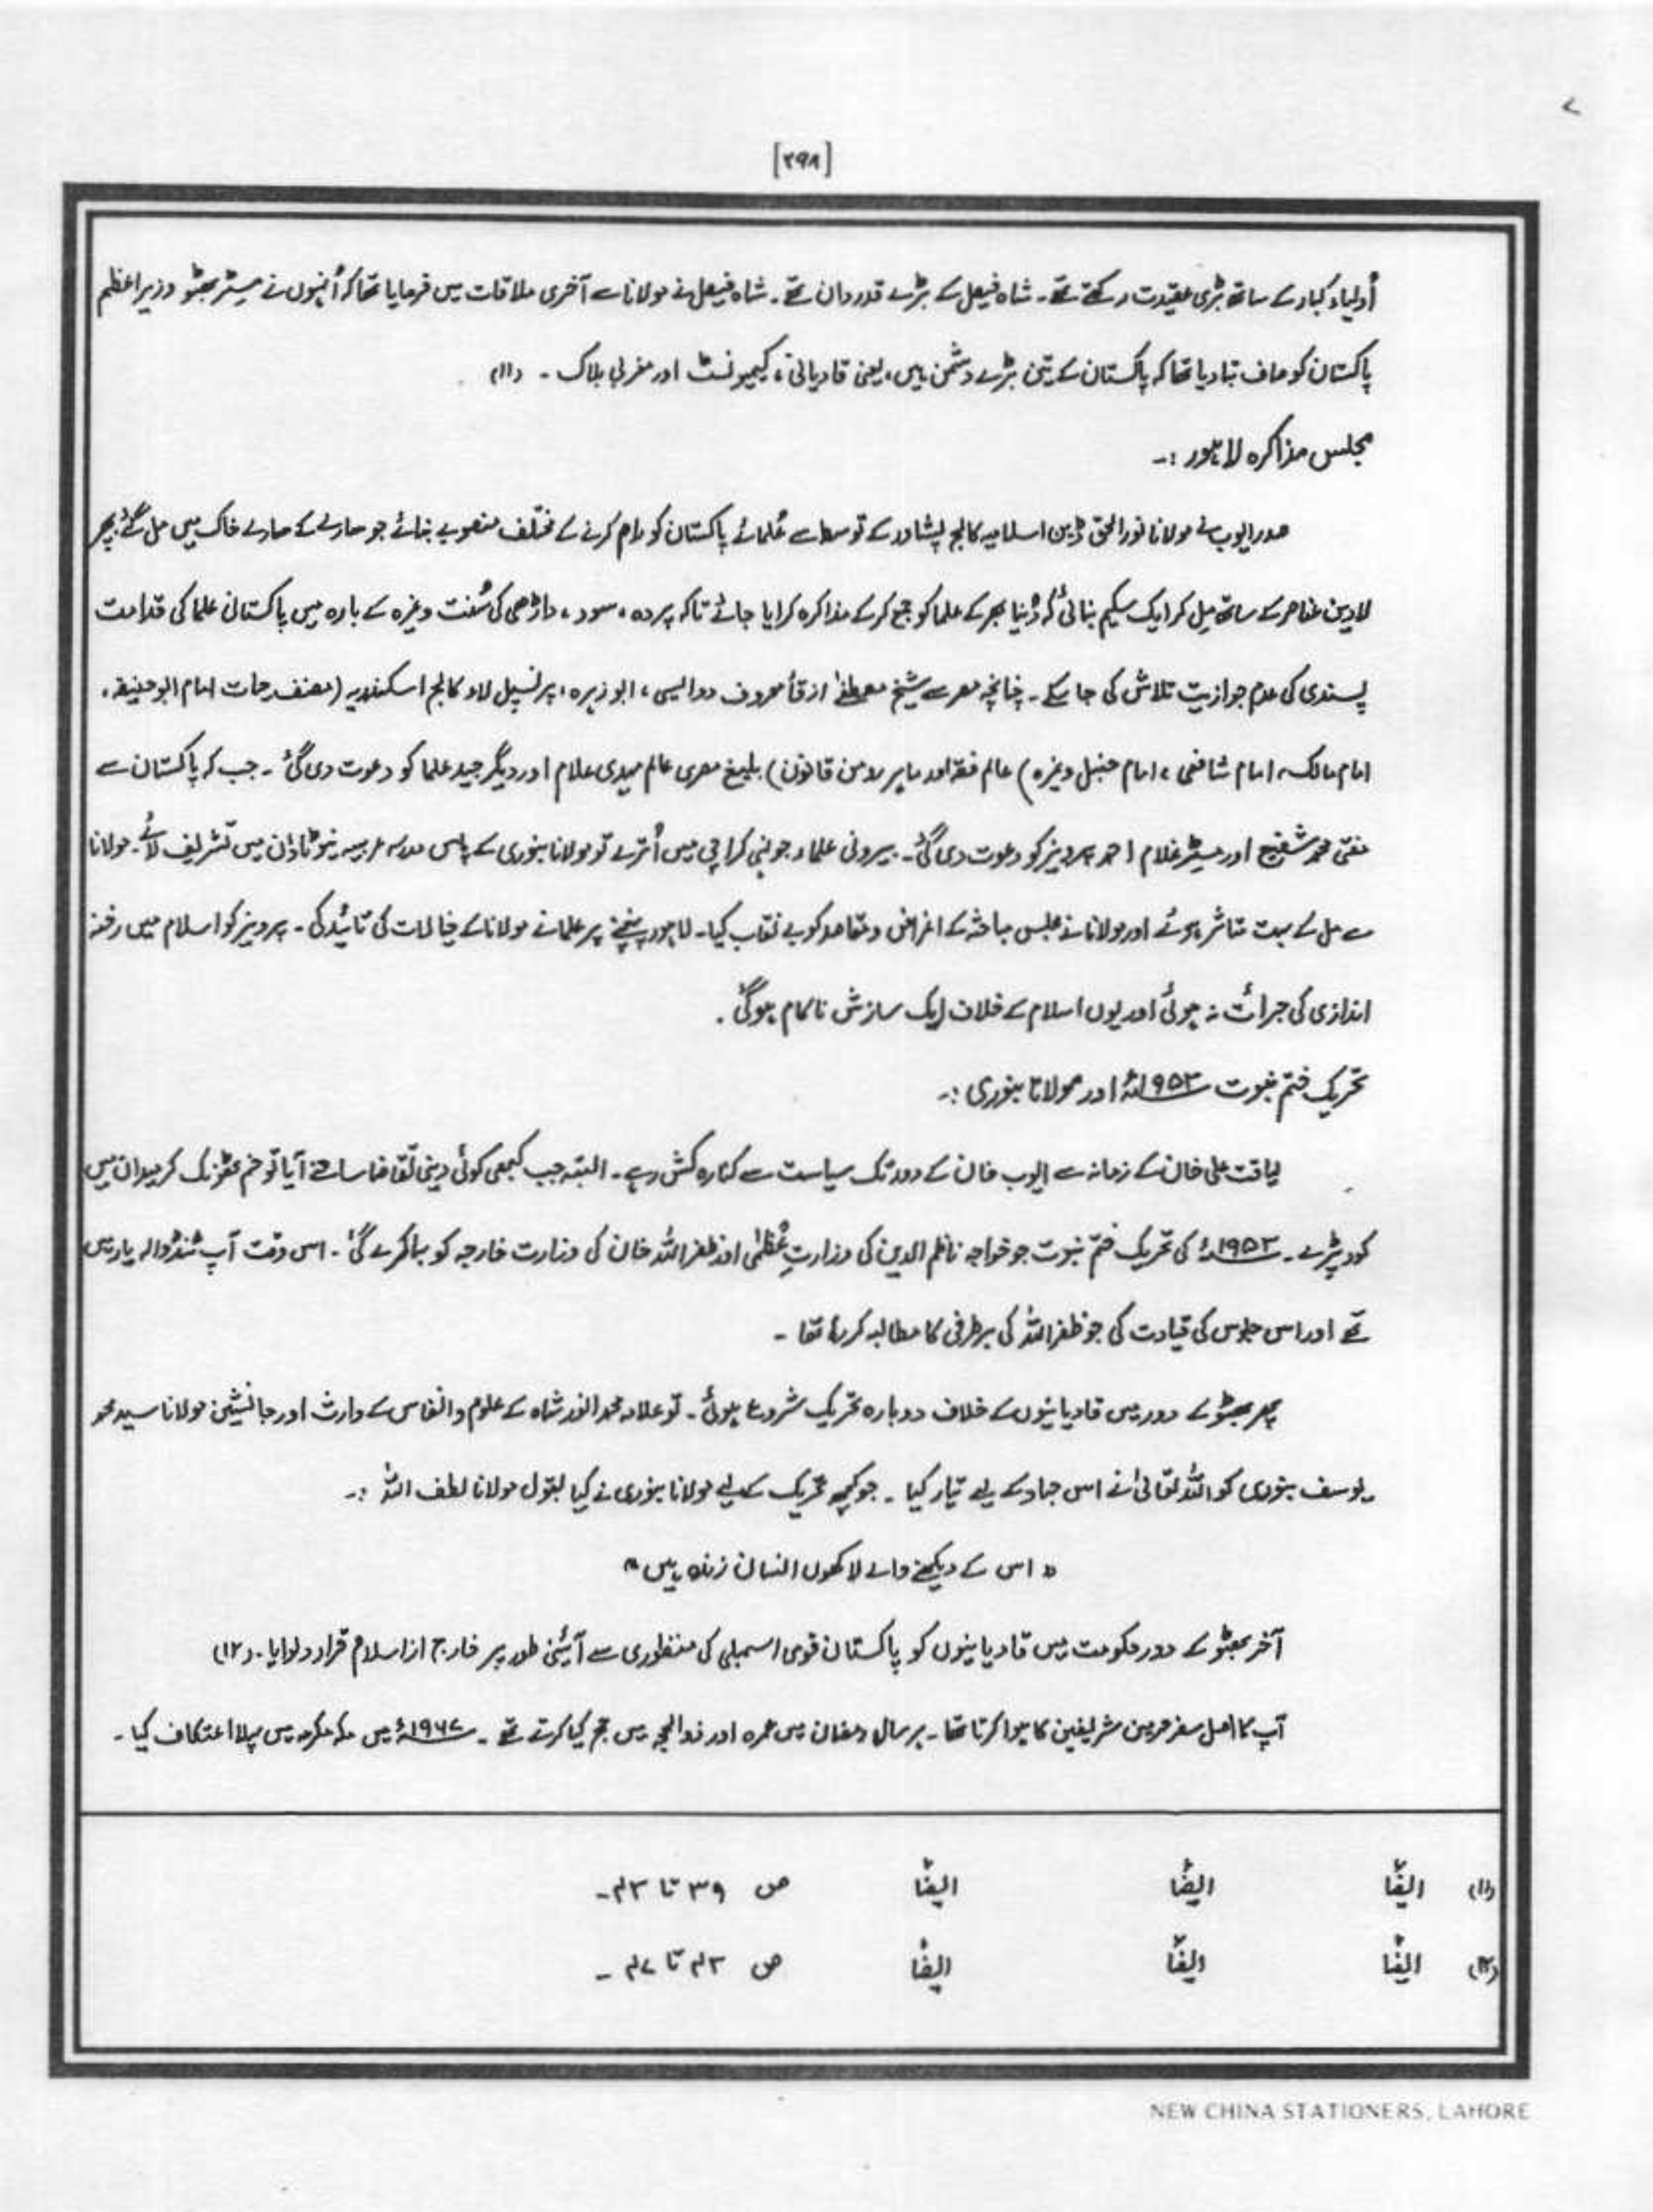 [۲۹۸]
أولیاء کبار کے ساتھ بڑی عقیدت رکھتے تھے۔ شاہ فیصل کے بڑے قدردان تھے۔ شاہ فیصل نے مولانا سے آخری ملاقات میں فرمایا تھا کہ اُنہوں نے مسٹر بھٹو وزیراعظم
پاکستان کو صاف بتادیا تھا کہ پاکستان کے تین بڑے دشمن ہیں، یعنی قادیانی، کیمونسٹ اور مغربی بلاک ۔ (۱۱)
مجلس مذاکرہ لاہور :۔
صدر ایوب نے مولانا نور الحق ڈین اسلامیہ کالج پشاور کے توسط سے عُلمائے پاکستان کو رام کرنے کے مختلف منصوبے بنائے جو سارے کے سارے خاک میں مل گئے، پھر
لادین عناصر کے ساتھ میل کر ایک سکیم بنائی کہ دُنیا بھر کے علما کو جمع کرکے مذاکرہ کرایا جائے تاکہ پردہ، سود، داڑھی کی سُنت وغیرہ کے بارہ میں پاکستانی علما کی قدامت
پسندی کی عدم جوازیت تلاش کی جا سکے ۔ چنانچہ مصر سے شیخ مصطفےٰ ازقأ معروف دوالیسی، ابو زہرہ، پرنسپل لاء کالج اسکندریہ (مصنف حیات امام ابوحنیفہ،
امام مالک، امام شافعی، امام حنبل وغیرہ) عالم فقہ اور ماہر رومن قانون) بلیغ مصری عالم مہدی علام اور دیگر جید علما کو دعوت دی گئی ۔ جب کہ پاکستان سے
مفتی محمد شفیع اور مسٹر غلام احمد پرویز کو دعوت دی گئی۔ بیرونی علماء جونہی کراچی میں اُترے تو مولانا بنوری کے پاس مدرسہ عربیہ نیوٹاؤن میں تشریف لائے۔ مولانا
سے مل کے بہت متاثر ہوئے اور مولانا نے مجلس مباحثہ کے اغراض و مقاصد کو بے نقاب کیا۔ لاہور پہنچنے پر علما نے مولانا کے خیالات کی تائید کی ۔ پرویز کو اسلام میں رخنہ
اندازی کی جرأت نہ ہوئی اور یوں اسلام کے خلاف ایک سازش ناکام ہوگئی .
تحریک ختم نبوت ۱۹۵۳ء اور مولانا بنوری :۔
لیاقت علی خان کے زمانہ سے ایوب خان کے دور تک سیاست سے کنارہ کش رہے ۔ البتہ جب کبھی کوئی دینی تقاضا سامنے آیا تو خم ٹھونک کر میدان میں
کود پڑے ۔ ۱۹۵۳ء کی تحریک ختم نبوت جو خواجہ ناظم الدین کی وزارتِ عُظمٰی اور ظفر اللہ خان کی وزارت خارجہ کو بہا کر لے گئی ۔ اس وقت آپ ٹنڈوالہ یار میں
تھے اور اس جلوس کی قیادت کی جو ظفر اللہ کی برطرفی کا مطالبہ کر رہا تھا ۔
پھر بھٹو کے دور میں قادیانیوں کے خلاف دوبارہ تحریک شروع ہوئی ۔ تو علامہ محمد انور شاہ کے علوم و انفاس کے وارث اور جانشین مولانا سید محمد
یوسف بنوری کو اللہ تعالیٰ نے اس جہاد کے لیے تیار کیا ۔ جو کچھ تحریک کے لیے مولانا بنوری نے کیا بقول مولانا لطف اللہ :۔
" اس کے دیکھنے والے لاکھوں انسان زندہ ہیں "
آخر بھٹو کے دور حکومت میں قادیانیوں کو پاکستان قومی اسمبلی کی منظوری سے آئینی طور پر خارج از اسلام قرار دلوایا ۔ (۱۲)
آپ کا اصل سفر حرمین شریفین کا ہوا کرتا تھا ۔ ہر سال رمضان میں عمرہ اور ذوالحجہ میں حج کیا کرتے تھے ۔ ۱۹۶۷ء میں مکہ مکرمہ میں پہلا اعتکاف کیا ۔
(۱۱) ایضًا ایضًا ایضًا ص ۳۹ تا ۴۳ ۔
(۱۲) ایضًا ایضًا ایضًا ص ۴۳ تا ۴۷ ۔
NEW CHINA STATIONERS, LAHORE